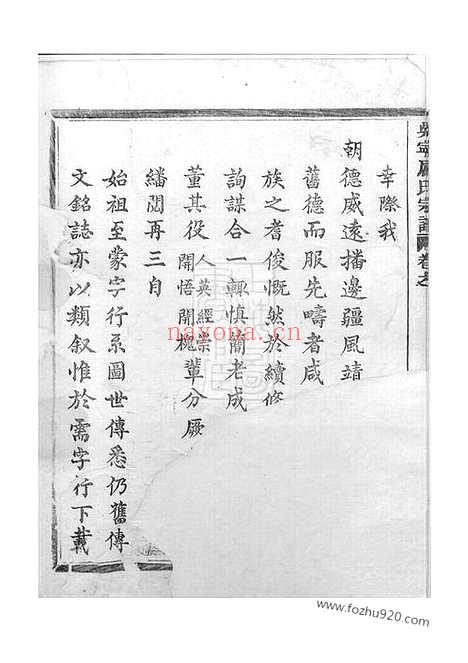 吳寧盧氏宗譜 卷之
幸際我
朝德威遠播邊疆風靖
舊德而服先疇者咸
族之耆俊慨然於續修
詢謀合一輙慎蕳老成
董其役人英經崇開悟開槐輩分厥
繙閱再三自
始祖至蒙字行系圖世傳悉仍舊傳
文銘誌亦以類叙惟於需字行下載
naxona.cn
www.fozhu920.com